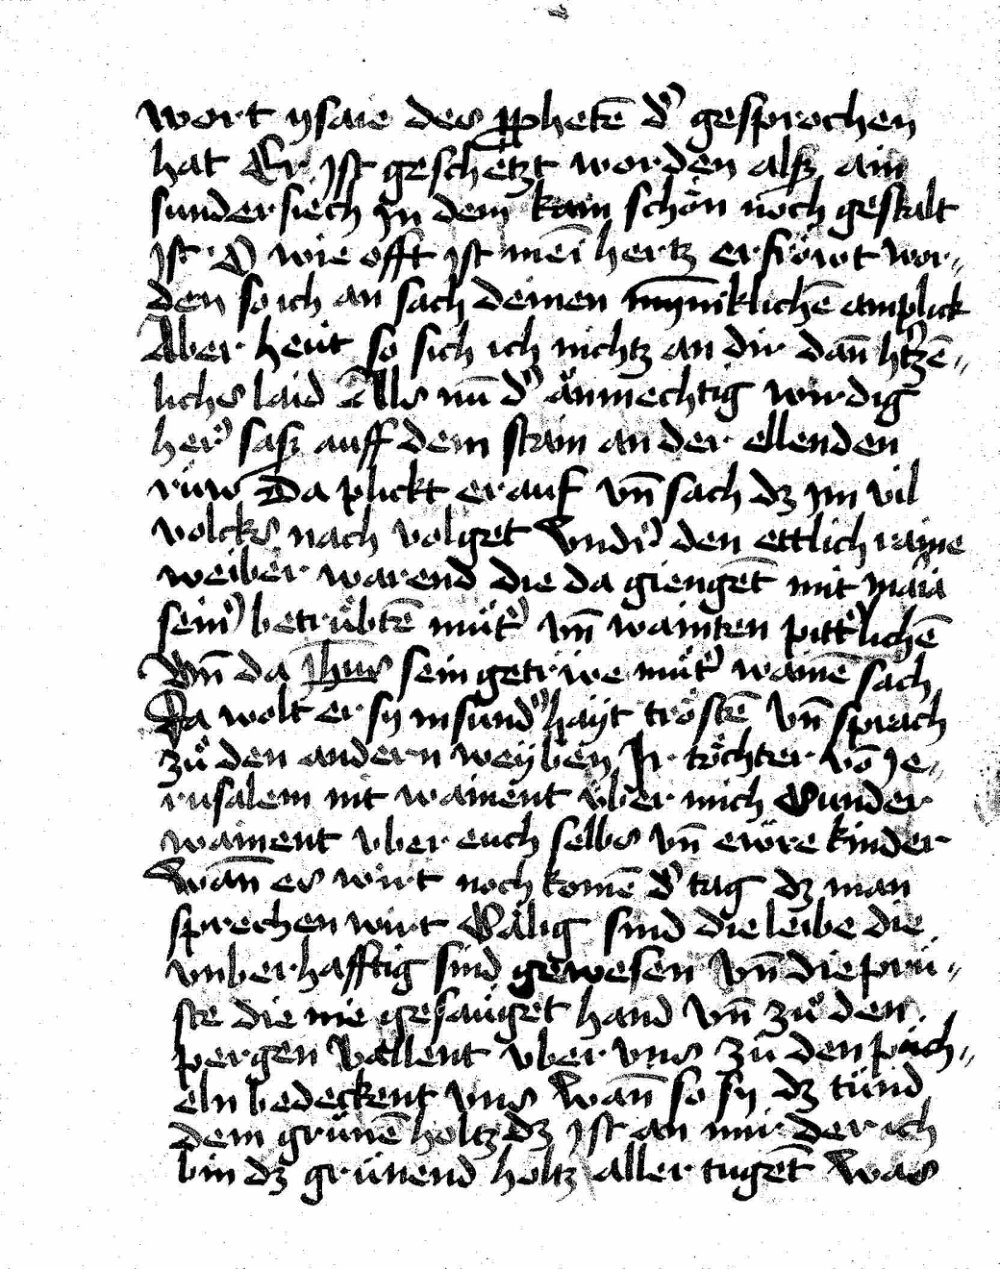 wort ysaie des ꝓphetē dˀ gesprochen
hat Er ist geschetzt worden alß ain
sundersiech In dem kain schön noch gestalt
ist O wie offt ist mēi hertz erfröwt wor⸗
den so ich an sach deinen mȳniklichē amplick
Aber heüt so sich ich nichtz an dir dañ htzē⸗
liches laid Als nū dˀ änmechtig wirdig
herˀ saß auff dem stain an der ellenden
rüw Da plickt er auf vñ sach dz im vil
volcks nach volget Vndˀ den ettlich raine
weiber warend die da giengēt mit maria
seinˀ betrübtē mūtˀ vñ wainten pittˀlichē
Vñ da Ihus sein getrüwe mūtˀ wainē sach
Da wolt er sy in sundˀhayt tröstē vñ sprach
zů den andern weyben Ir töchter vō Je⸗
rusalem nit wainent über mich Sunder
wainent vber euch selbs vñ ewre kinder
Wañ es wirt noch komē dˀ tag dz man
sprechen wirt Sälig sind die leibe die
vnberhafftig sind gewesen vñ die prü⸗
ste die nie gesäuget hand vñ zů den
pergen vallent vber vns zů den püch⸗
eln bedeckent vns Wañ so sy dz tůnd
dem grünē holtz dz ist an mir der ich
bin dz grünend holtz aller tugēt Was